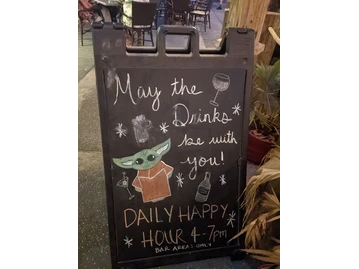 May the
Drinks
be with
you!
DAILY HAPPY
HOUR 4-7pm
BAR AREA ONLY